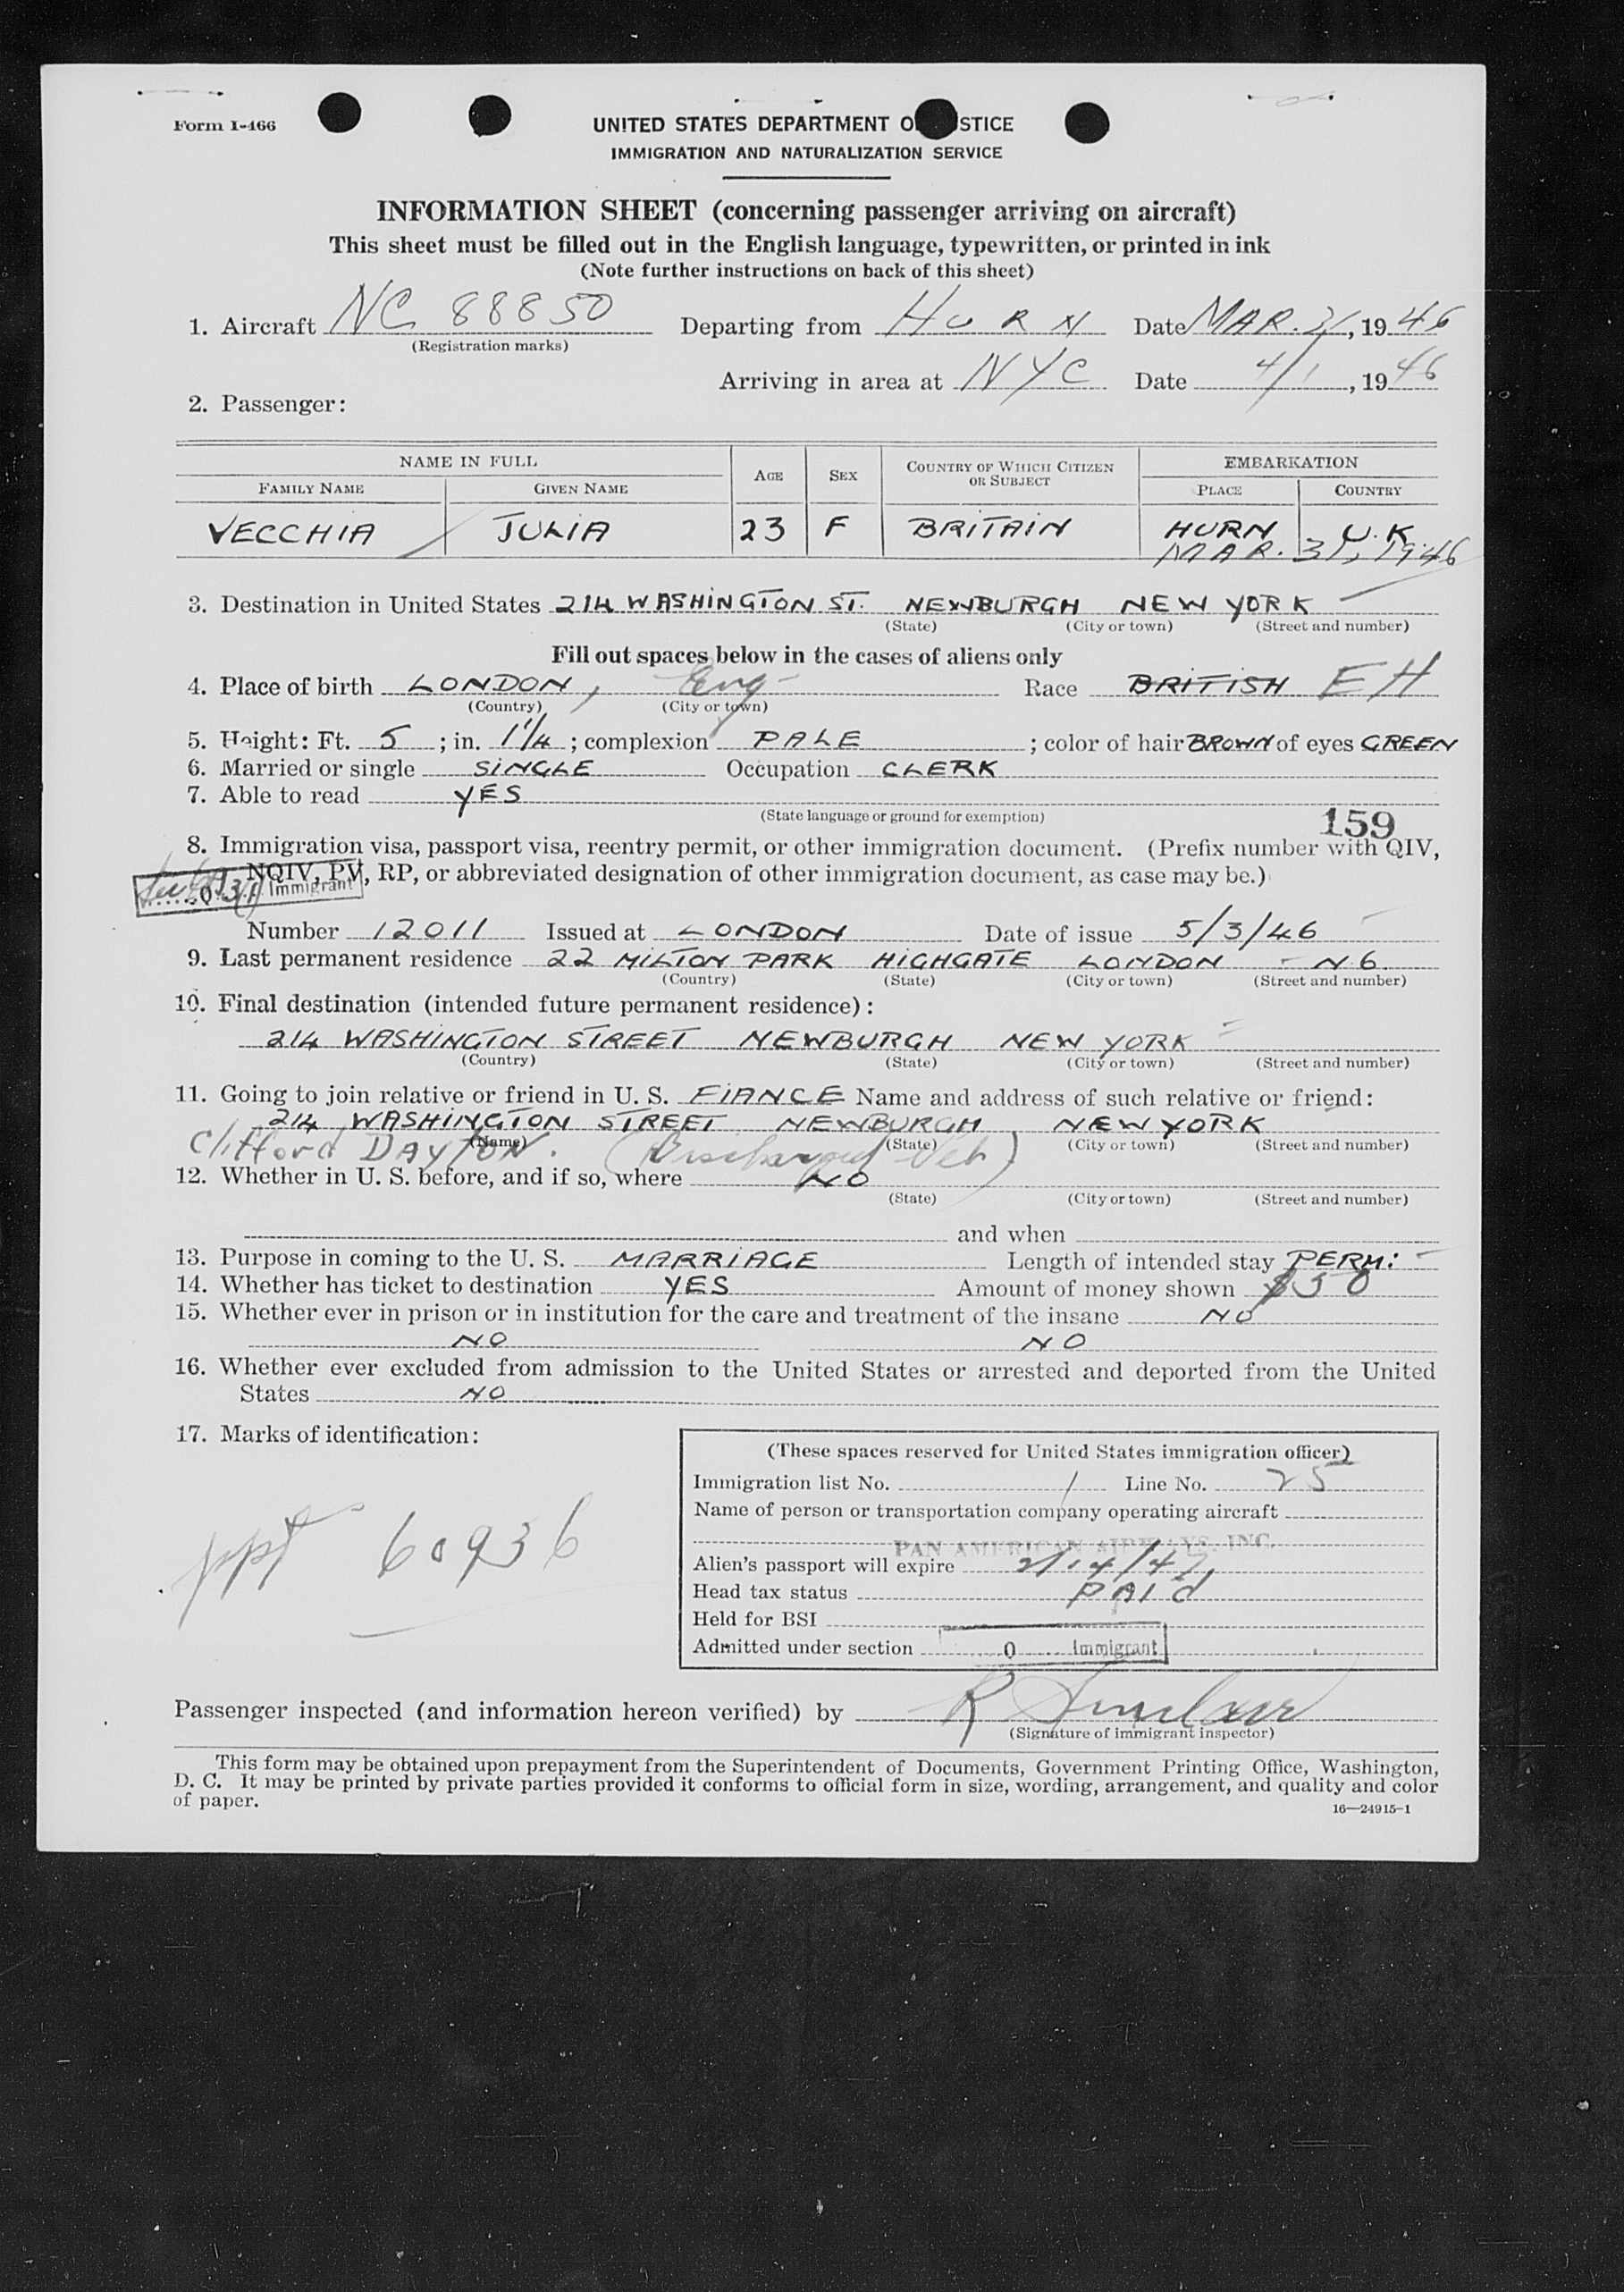 Form I-466
UNITED STATES DEPARTMENT O STICE
IMMIGRATION AND NATURALIZATION SERVICE
INFORMATION SHEET (concerning passenger arriving on aircraft)
This sheet must be filled out in the English language, typewritten, or printed in ink
(Note further instructions on back of this sheet)
1. Aircraft NC 88850 Departing from HURN Date MAR. 31, 1946
(Registration marks)
Arriving in area at NYC Date 4/1, 1946
2. Passenger:
NAME IN FULL AGE SEX COUNTRY OF WHICH CITIZEN OR SUBJECT EMBARKATION
FAMILY NAME GIVEN NAME PLACE COUNTRY
VECCHIA JULIA 23 F BRITAIN HURN U.K.
MAR. 31, 1946
3. Destination in United States 214 WASHINGTON ST. NEWBURGH NEW YORK
(State) (City or town) (Street and number)
Fill out spaces below in the cases of aliens only
4. Place of birth LONDON, Eng Race BRITISH EH
(Country) (City or town)
5. Height: Ft. 5; in. 1 1/4; complexion PALE; color of hair BROWN of eyes GREEN
6. Married or single SINGLE Occupation CLERK
7. Able to read YES
(State language or ground for exemption)
159
8. Immigration visa, passport visa, reentry permit, or other immigration document. (Prefix number with QIV,
NQIV, PV, RP, or abbreviated designation of other immigration document, as case may be.)
Immigrant
Number 12011 Issued at LONDON Date of issue 5/3/46
9. Last permanent residence 22 MILTON PARK HIGHGATE LONDON - N.6.
(Country) (State) (City or town) (Street and number)
10. Final destination (intended future permanent residence):
214 WASHINGTON STREET NEWBURGH NEW YORK
(Country) (State) (City or town) (Street and number)
11. Going to join relative or friend in U. S. FIANCE Name and address of such relative or friend:
214 WASHINGTON STREET NEWBURGH NEW YORK
(Name) (State) (City or town) (Street and number)
Clifford DAYTON. (Discharged Vet)
12. Whether in U. S. before, and if so, where NO
(State) (City or town) (Street and number)
and when
13. Purpose in coming to the U. S. MARRIAGE Length of intended stay PERM:
14. Whether has ticket to destination YES Amount of money shown $50
15. Whether ever in prison or in institution for the care and treatment of the insane NO
NO NO
16. Whether ever excluded from admission to the United States or arrested and deported from the United
States NO
17. Marks of identification:
ppt 60936
(These spaces reserved for United States immigration officer)
Immigration list No. 1 Line No. 25
Name of person or transportation company operating aircraft
PAN AMERICAN AIRWAYS, INC.
Alien's passport will expire
Head tax status PAID
Held for BSI
Admitted under section 0 Immigrant
Passenger inspected (and information hereon verified) by R Sinclair
(Signature of immigrant inspector)
This form may be obtained upon prepayment from the Superintendent of Documents, Government Printing Office, Washington,
D. C. It may be printed by private parties provided it conforms to official form in size, wording, arrangement, and quality and color
of paper.
16—24915-1